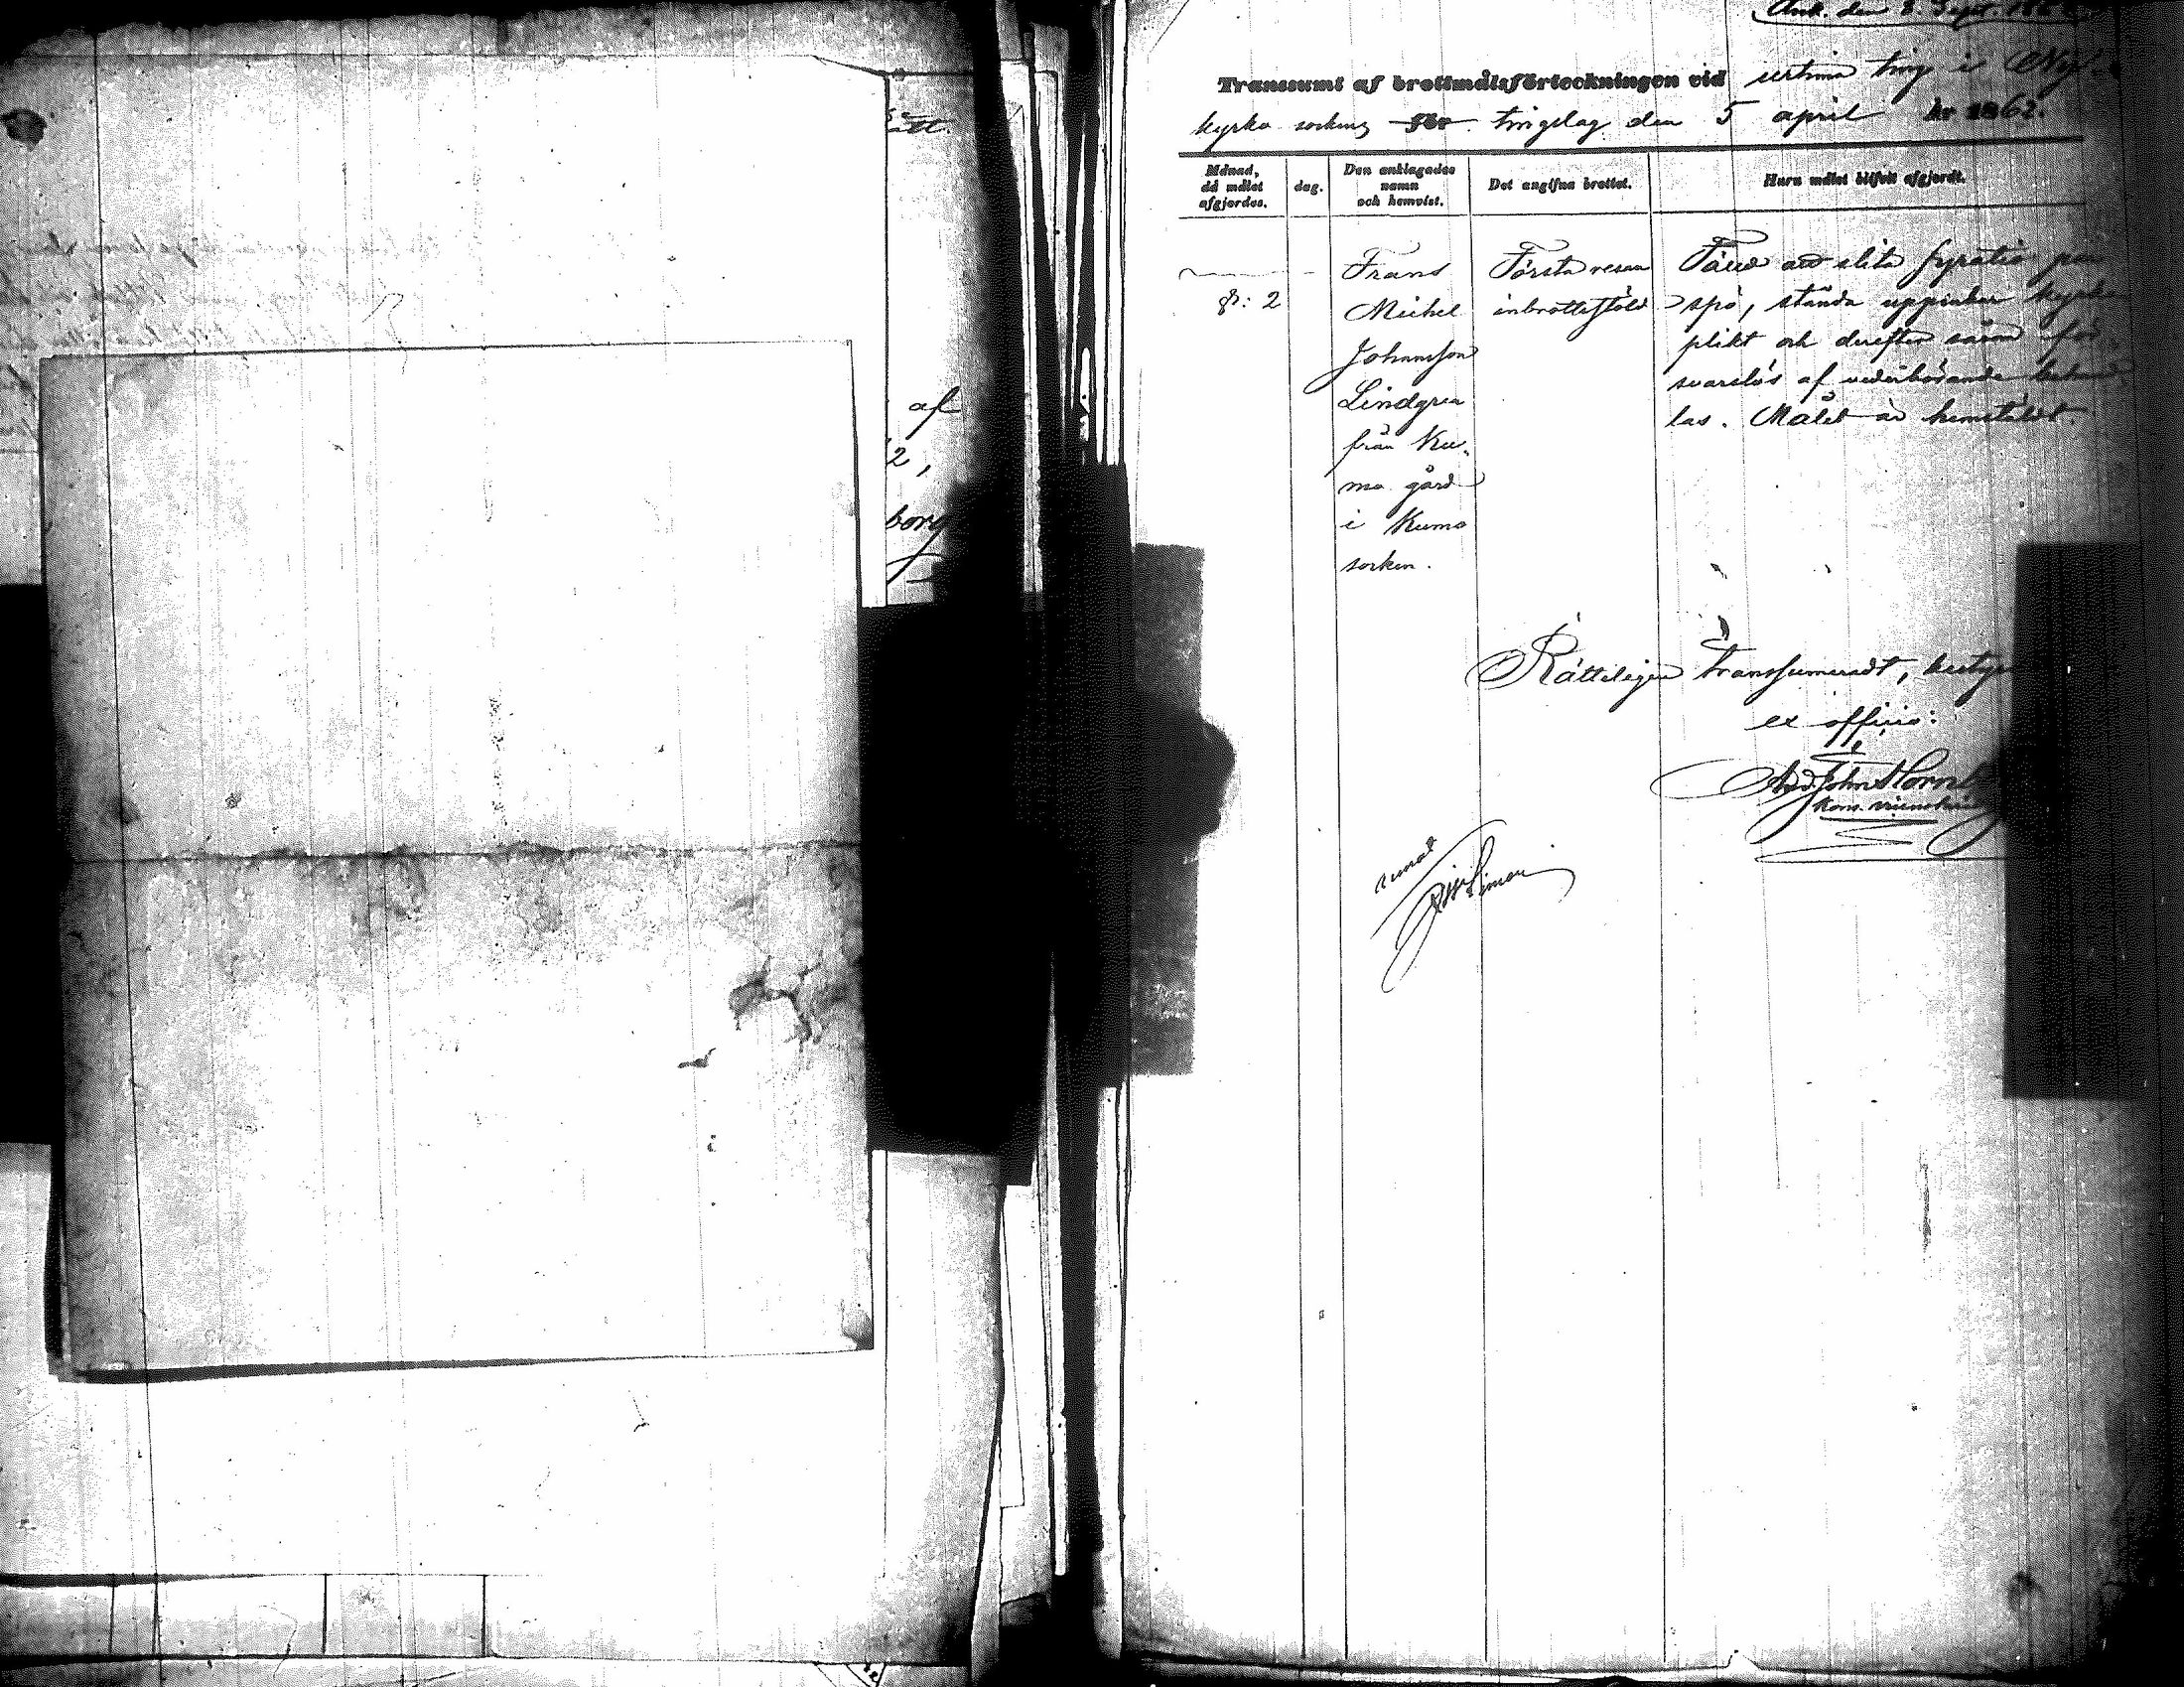 ätt.
af
2,
borg
Ank. den 3. Sept. 186
Transumt af brottmålsförteckningen vid urtima ting i Ny
kyrko sockens för tingslag den 5 april år 1862.
Månad, då målet afgjordes.
dag.
Den anklagades namn och hemvist.
Det angifna brottet.
Huru målet blifvit afgjordt.
№: 2
Frans
Michel
Johansson
Lindgren
från Ku-
mo gård
i Kumo
socken.
Första resan
inbrottsstöld
Fäld att slita fyratio par
spö, stånda uppenbar kyrko
plikt och derefter såsom för-
svarslös af vederbörande behand
las. Målet är hemstäldt.
Rätteligen transsumeradt, betyg
ex officio:
And. John Hornb